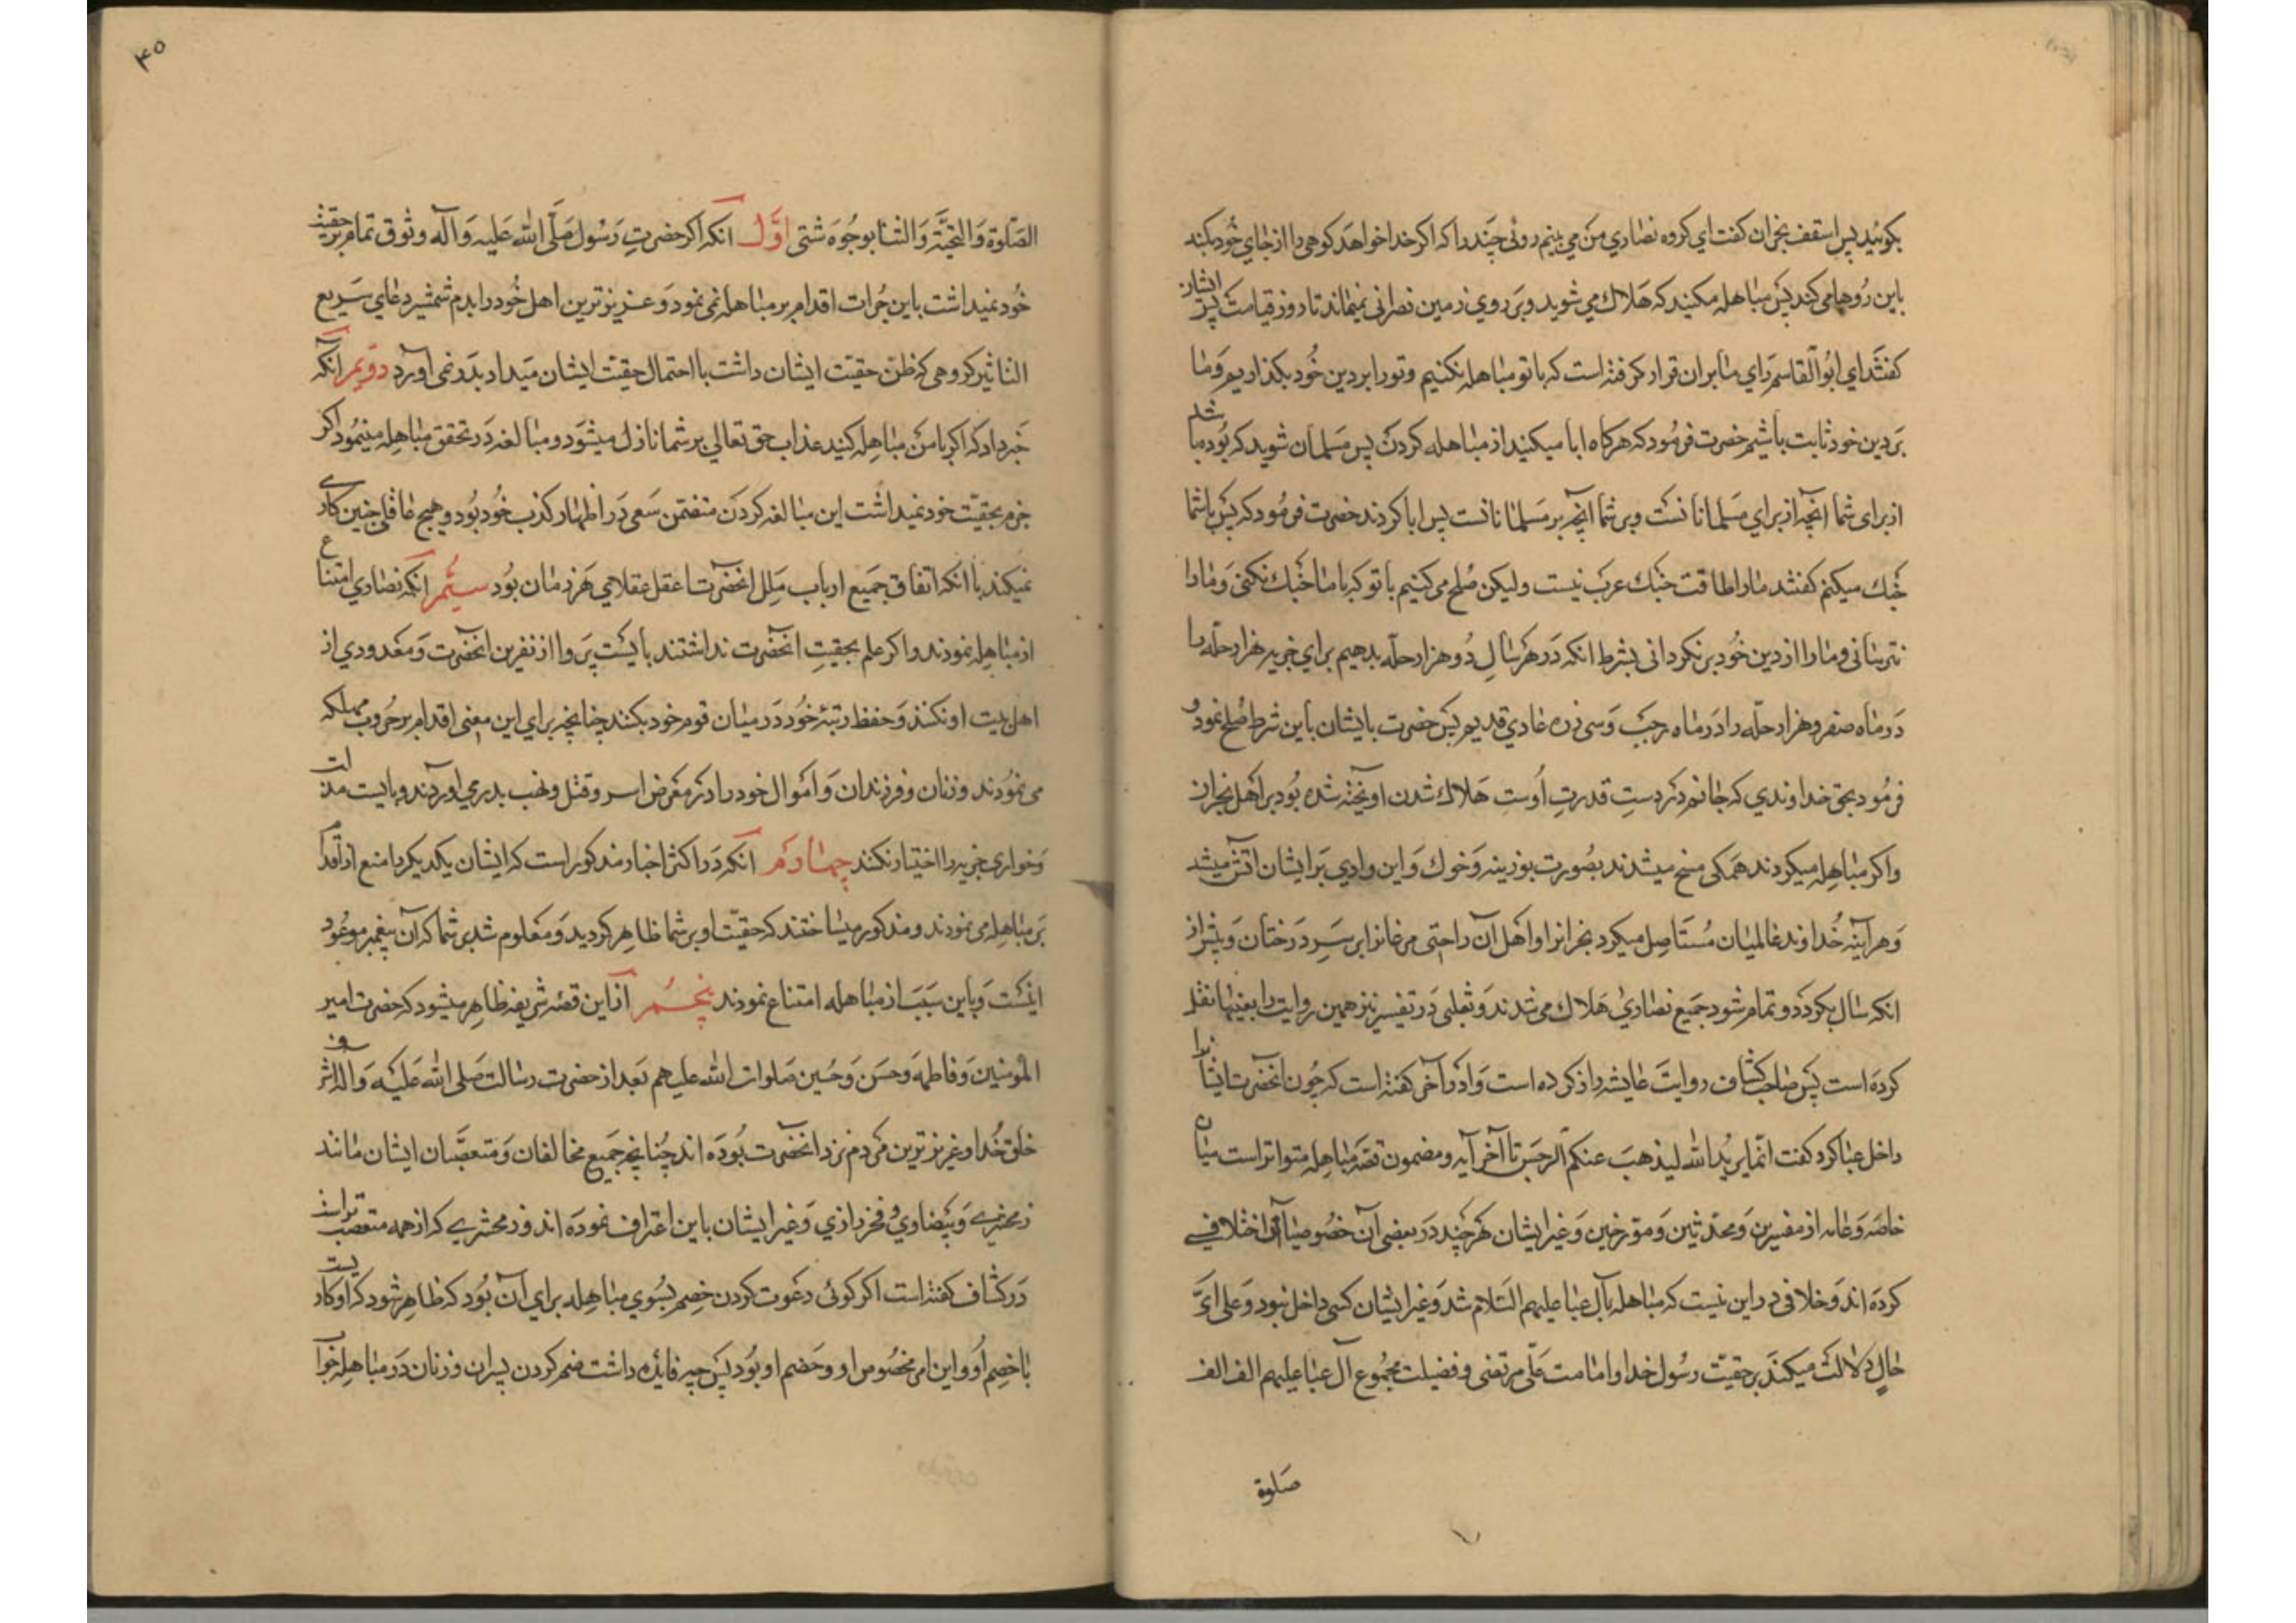 بکوئید پس اسقف نجران کفت ای کروه نصاری من می بینم روئی چند را که اکر خدا خواهد کوهی را از جای خود بکند
باین روها می کند پس مباهله مکنید که هلاک می شوید و بر روی زمین نصرانی نمیماند تا روز قیامت پس ایشان
کفتند ای ابو القاسم رای ما بران قرار کرفته است که با تو مباهله نکنیم و تو را بر دین خود بکذاریم و ما
بر دین خود ثابت باشیم حضرت فرمود که هرکاه ابا میکنید از مباهله کردن پس مسلمان شوید که بوده باشد
از برای شما آنچه از برای مسلمانانست و بر شما آنچه بر مسلمانانست پس ابا کردند حضرت فرمود که پس با شما
جنک میکنم کفتند ما را طاقت جنک عرب نیست ولیکن صلح می کنیم با تو که با ما جنک نکنی و ما را
نترسانی و ما را از دین خود برنکردانی بشرط انکه در هر سال دو هزار حله بدهیم برای جزیه هزار حله را
در ماه صفر و هزار حله را در ماه رجب و سی زره عادی قدیم پس حضرت با ایشان باین شرط صلح نمود و
فرمود بحق خداوندی که جانم در دست قدرت اوست هلاک شدن اویخته شده بود بر اهل نجران
و اکر مباهله میکردند همکی مسخ میشدند بصورت بوزینه و خوک و این وادی بر ایشان اتش میشد
و هر آینه خداوند عالمیان مستاصل میکرد نجرانرا و اهل آن را حتی مرغانرا بر سر درختان و پیش از
انکه سال بکردد و تمام شود جمیع نصاری هلاک می شدند و ثعلبی در تفسیر نیز همین روایت را بعینها نقل
کرده است پس صاحب کشاف روایت عایشه را ذکر کرده است و در آخر کفته است که چون انحضرت ایشانرا
داخل عبا کرد کفت انما یرید الله لیذهب عنکم الرجس تا آخر آیه و مضمون قصه مباهله متواتر است میان
خاصه و عامه از مفسرین و محدثین و مورخین و غیر ایشان هر چند در بعضی آن خصوصیات آن اختلافی
کرده اند و خلافی در این نیست که مباهله بآل عبا علیهم السلام شد و غیر ایشان کسی داخل نبود و علی ای
حال دلالت میکند بر حقیت رسول خدا و امامت علی مرتضی و فضیلت مجموع آل عبا علیهم الف الف
صلوة
۴۵
الصلوة و التحیة و الثنا بوجوه شتی اول انکه اکر حضرت رسول صلی الله علیه و آله وثوق تمام بر حقیت
خود نمیداشت باین جرات اقدام بر مباهله نمی نمود و عزیزترین اهل خود را بدم شمشیر دعای سریع
التاثیر کروهی که ظن حقیت ایشان داشت یا احتمال حقیت ایشان میداد بدر نمی آورد دویم آنکه
خبر داد که اکر با من مباهله کنید عذاب حق تعالی بر شما نازل میشود و مبالغه در تحقق مباهله مینمود اکر
جزم بحقیت خود نمیداشت این مبالغه کردن متضمن سعی در اظهار کذب خود بود و هیچ عاقلی چنین کاری
نمیکند با انکه اتفاق جمیع ارباب ملل انحضرت اعقل عقلای هر زمان بود سیم انکه نصاری امتناع
از مباهله نمودند و اکر علم بحقیت انحضرت نداشتند بایست پروا از نفرین انحضرت و معدودی از
اهل بیت او نکنند و حفظ رتبه خود در میان قوم خود بکنند چنانچه برای این معنی اقدام بر حروب مهلکه
می نمودند و زنان و فرزندان و اموال خود را در معرض اسر و قتل و نهب بدر می اوردند و بایست مذلت
و خواری جزیه را اختیار نکنند چهارم انکه در اکثر اخبار مذکور است که ایشان یکدیکر را منع از اقدام
بر مباهله می نمودند و مذکور میساختند که حقیت او بر شما ظاهر کردید و معلوم شد بر شما که آن پیغمبر موعود
اینست و باین سبب از مباهله امتناع نمودند پنجم از این قصه شریفه ظاهر میشود که حضرت امیر
المومنین و فاطمه و حسن و حسین صلوات الله علیهم بعد از حضرت رسالت صلی الله علیه و آله اشرف
خلق خدا و عزیزترین مردم نزد انحضرت بوده اند چنانچه جمیع مخالفان و متعصبان ایشان مانند
زمخشری و بیضاوی و فخر رازی و غیر ایشان باین اعتراف نموده اند و زمخشری که از همه متعصب تر است
در کشاف کفته است اکر کوئی دعوت کردن خصم بسوی مباهله برای آن بود که ظاهر شود که او کاذبست
یا خصم او و این امر مخصوص او و خصم او بود پس چه فایده داشت ضم کردن پسران و زنان در مباهله